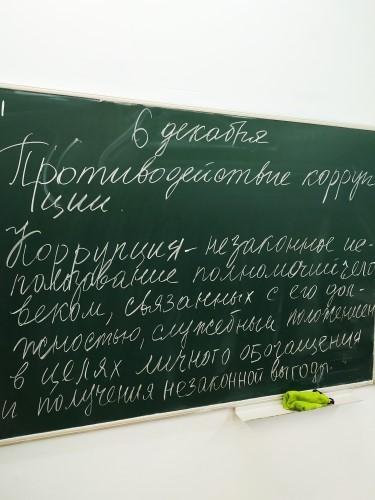 6 декабря
Противодействие корруп
ции.
Коррупция - незаконное ис-
пользование полномочий чело
веком, связанных с его дол-
жностью, служебным положением
в целях личного обогащения
и получения незаконной выгоды.